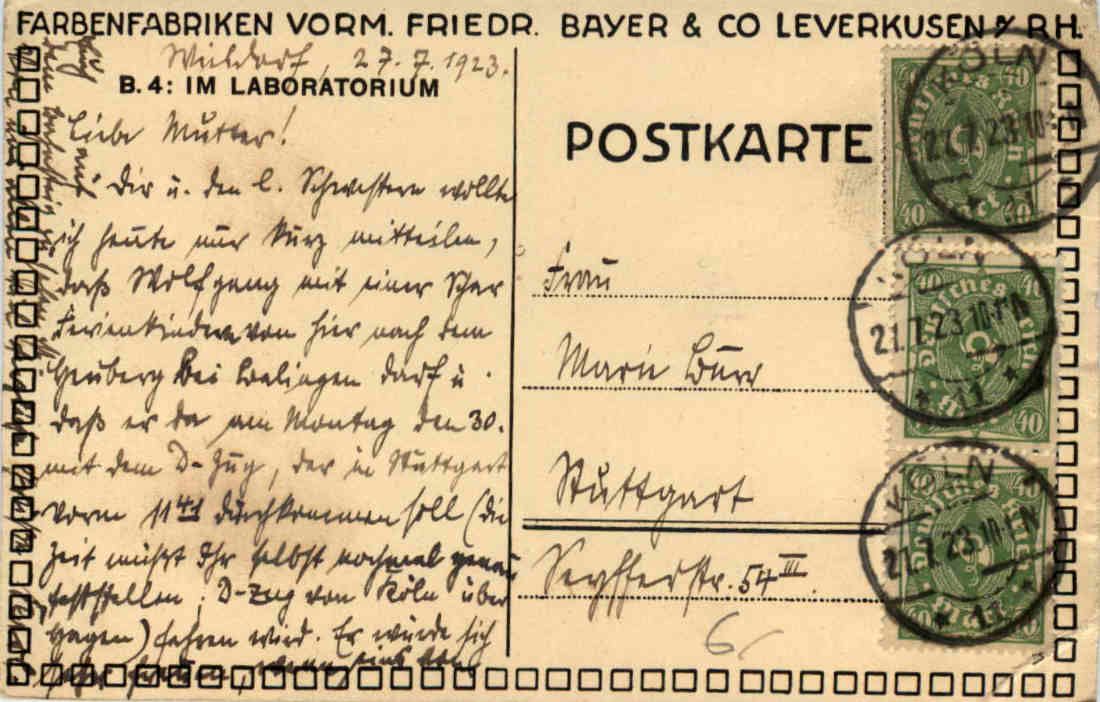 FARBENFABRIKEN VORM. FRIEDR. BAYER & CO LEVERKUSEN a/ RH.
27.7.1923.
B. 4: IM LABORATORIUM
POSTKARTE
Liebe Mutter!
Dir u. den l. Schwestern wollte
ich heute nur kurz mitteilen,
daß Wolfgang mit einer Schar
Ferienkindern von hier nach dem
Heuberg bei Balingen darf u.
daß er da am Montag den 30.
mit dem D-Zug, der in Stuttgart
vorm 11 41 durchkommen soll (die
Zeit müßt Ihr selbst nochmal genau
feststellen; D-Zug von Köln über
Hagen) fahren wird. Er würde sich
sehr freuen, wenn eins von
auf
Frau
Marie Burr
Stuttgart
Seyfferstr. 54 III.
6
Deutsches Reich
40 40
40 Mark 40
KÖLN
27.7.23.10-11N
* 11 *
Deutsches Reich
40 40
Mark 40
KÖLN
27.7.23.10-11N
* 11 *
Deutsches Reich
40 40
Mark 40
KÖLN
27.7.23.10-11N
* 11 *